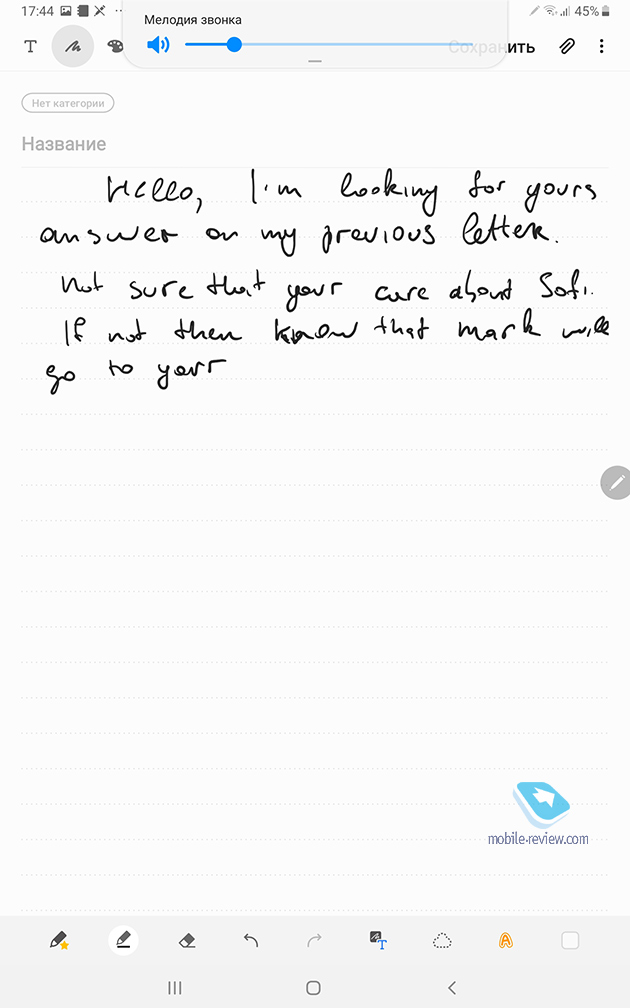 17:44 45%
Мелодия звонка
Сохранить
Нет категории
Название
Hello, I'm looking for yours
answer on my previous letter.
Not sure that your care about Sofi.
If not then know that mark will
go to your
mobile-review.com